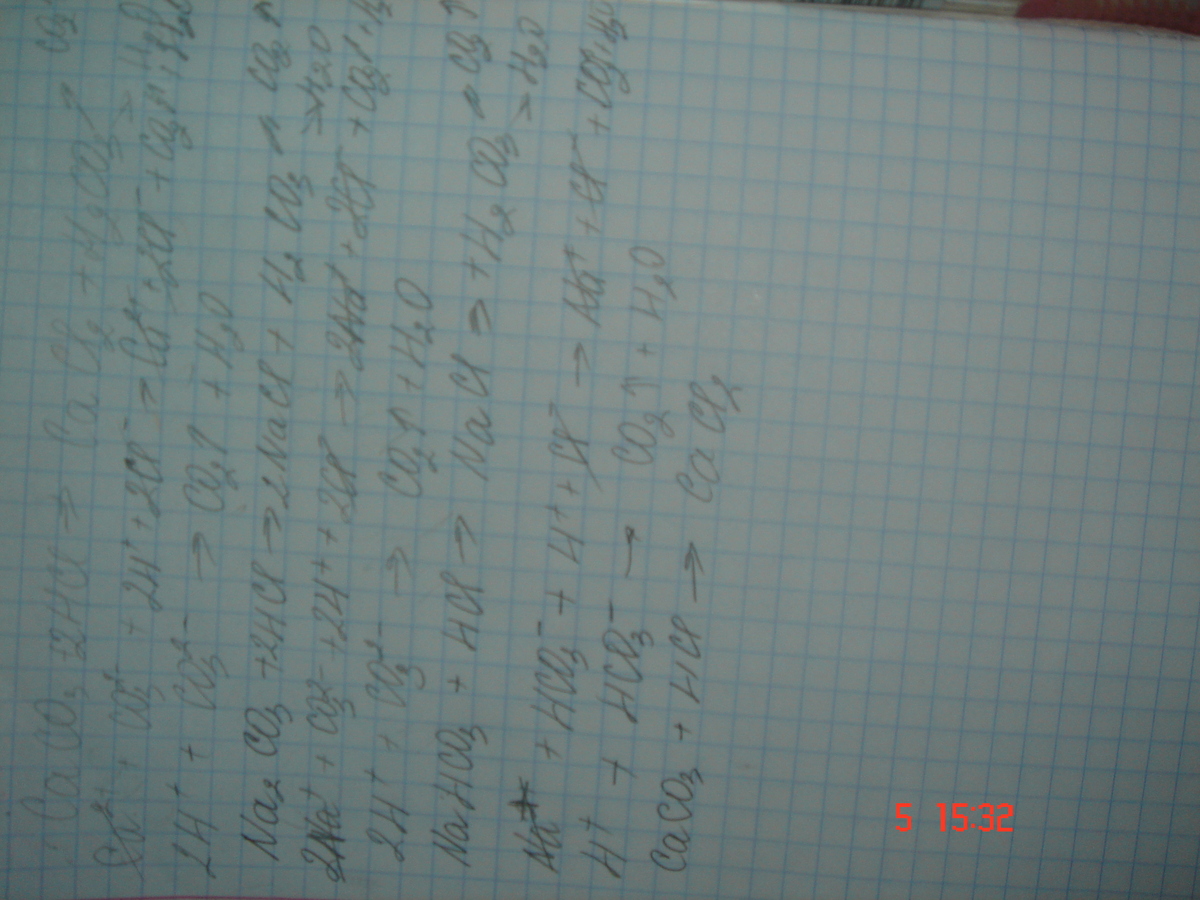 CaCO₃ + 2HCl → CaCl₂ + H₂CO₃ ↗ CO₂
↘ H₂O
Ca²⁺ + CO₃²⁻ + 2H⁺ + 2Cl⁻ → Ca²⁺ + 2Cl⁻ + CO₂↑ + H₂O
2H⁺ + CO₃²⁻ → CO₂↑ + H₂O
Na₂CO₃ + 2HCl → 2NaCl + H₂CO₃ ↗ CO₂↑
↘ H₂O
2Na⁺ + CO₃²⁻ + 2H⁺ + 2Cl⁻ → 2Na⁺ + 2Cl⁻ + CO₂↑ + H₂
2H⁺ + CO₃²⁻ → CO₂↑ + H₂O
NaHCO₃ + HCl → NaCl → + H₂CO₃ ↗ CO₂↑
↘ H₂O
Na⁺ + HCO₃⁻ + H⁺ + Cl⁻ → Na⁺ + Cl⁻ + CO₂↑ + H₂O
H⁺ + HCO₃⁻ → CO₂↑ + H₂O
CaCO₃ + HCl → CaCl₂
5 15:32